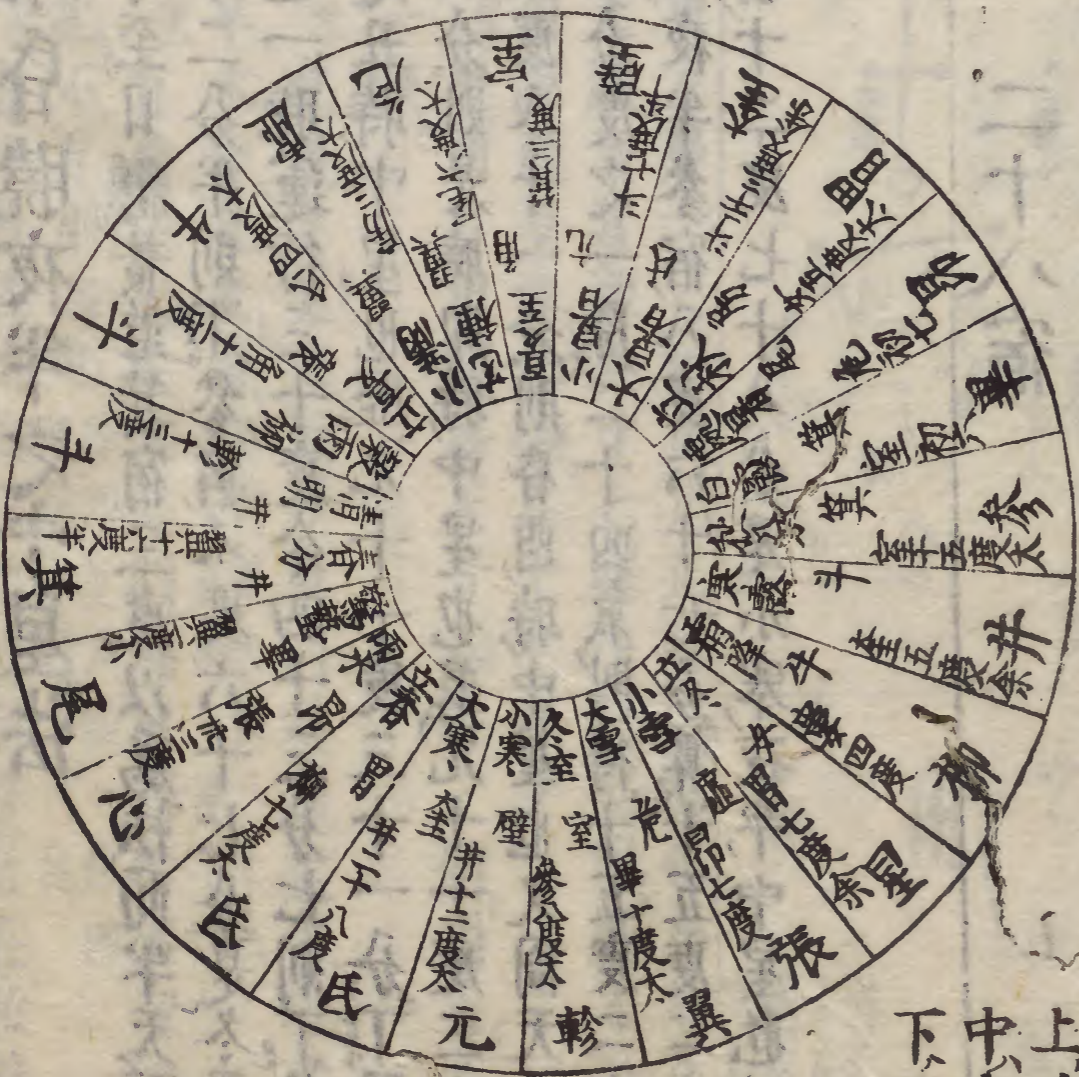 冬至 室 參八度太 軫
小寒 壁 井十二度太 元
大寒 奎 井二十八度 氐
立春 胃 柳十度太 氐
雨水 昴 張 三度 心
驚蟄 畢 翼 度少 尾
春分 井 翼十六度半 箕
清明 井 軫十三度 斗
穀雨 柳 角十二度 斗
立夏 氐四度太 牛
小滿 翼 房三度太 虛
芒種 翼 尾六度太 危
夏至 角 箕三度 室
小暑 亢 斗十度半 壁
大暑 氐 斗廿三度 奎
立秋 房 女五度太 胃
處暑 尾 危初 昴
白露 箕 室初 畢
秋分 箕 室十五度太 參
寒露 斗 奎五度余 井
霜降 牛 婁四度 柳
立冬 女 胃七度余 星
小雪 虛 昴七度 張
大雪 危 畢十度太 翼
上
中
下